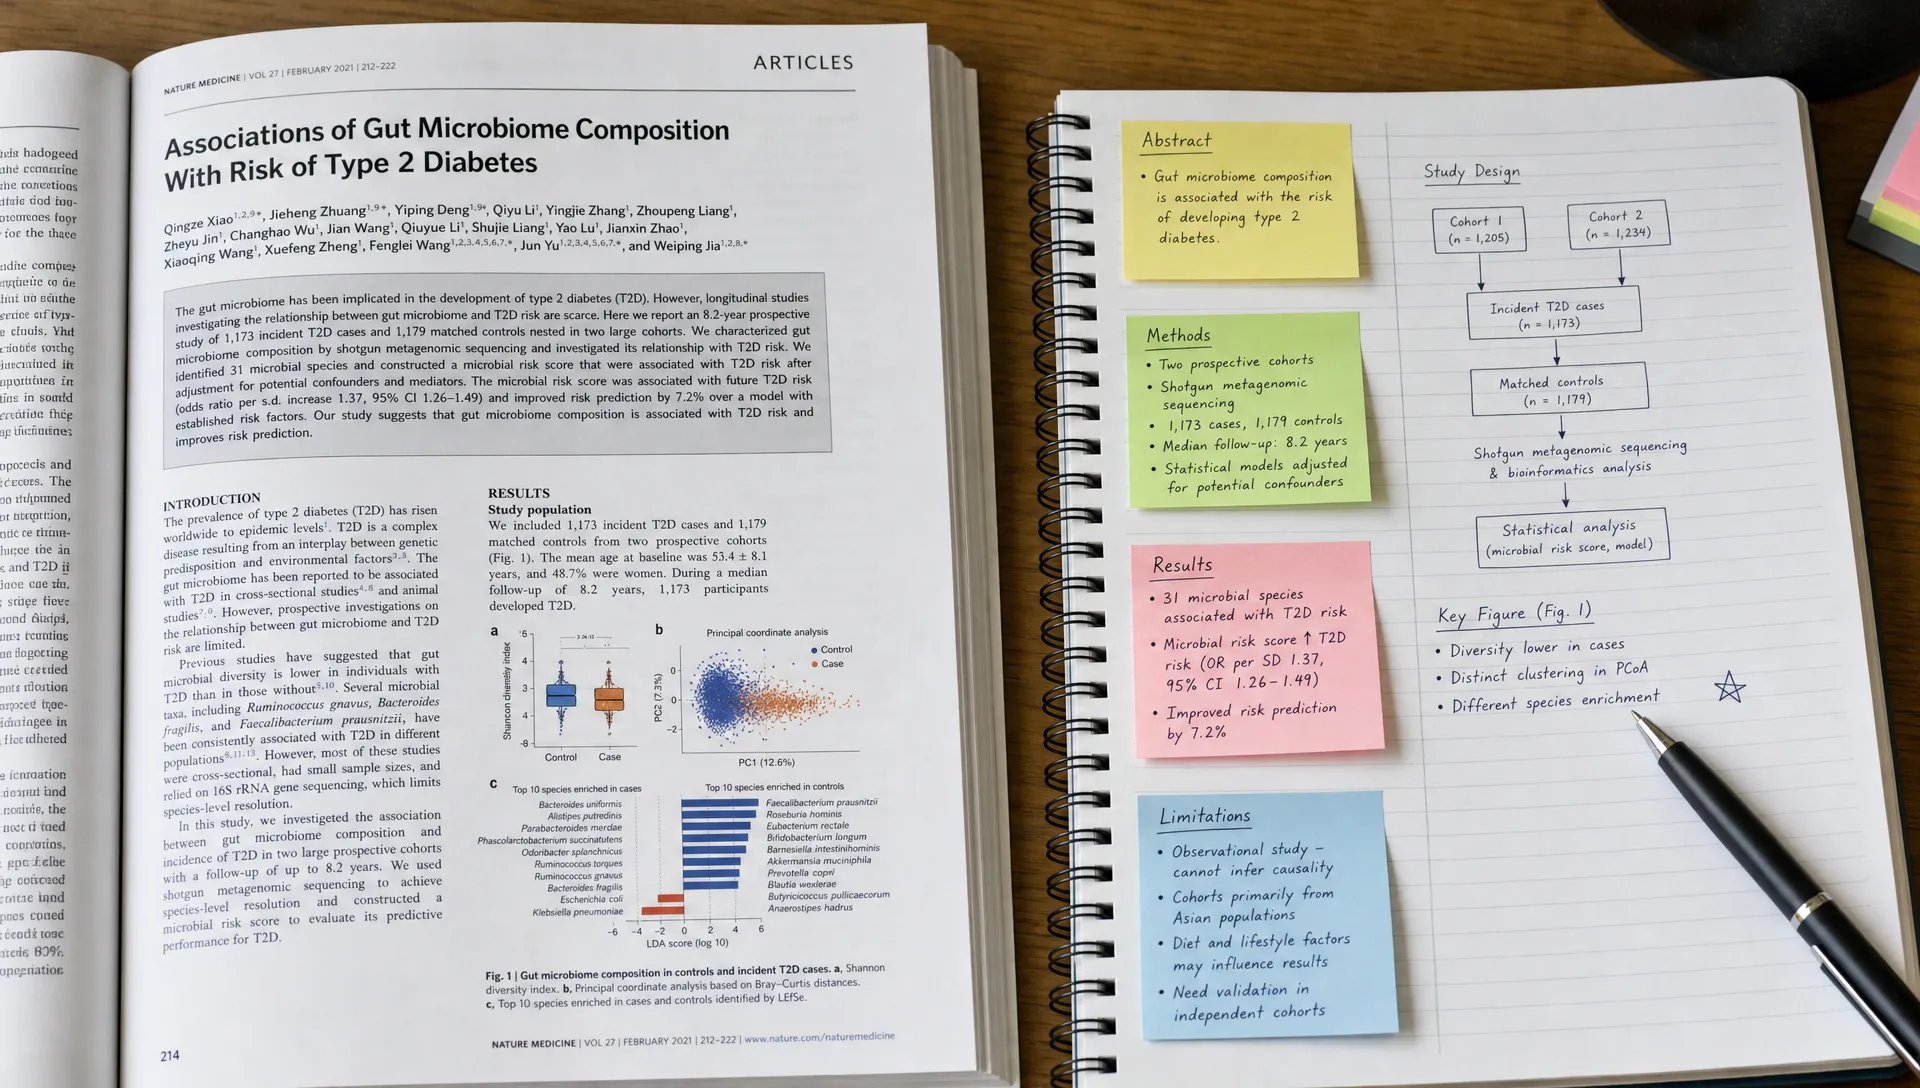 NATURE MEDICINE | VOL 27 | FEBRUARY 2021 | 212–222
ARTICLES
Associations of Gut Microbiome Composition
With Risk of Type 2 Diabetes
Qingze Xiao1,2,9*, Jieheng Zhuang1,9*, Yiping Deng1,9*, Qiyu Li1, Yingjie Zhang1, Zhoupeng Liang1,
Zheyu Jin1, Changhao Wu1, Jian Wang1, Qiuyue Li1, Shujie Liang1, Yao Lu1, Jianxin Zhao1,
Xiaoqing Wang1, Xuefeng Zheng1, Fenglei Wang1,2,3,4,5,6,7,*, Jun Yu1,2,3,4,5,6,7,*, and Weiping Jia1,2,8,*
The gut microbiome has been implicated in the development of type 2 diabetes (T2D). However, longitudinal studies
investigating the relationship between gut microbiome and T2D risk are scarce. Here we report an 8.2-year prospective
study of 1,173 incident T2D cases and 1,179 matched controls nested in two large cohorts. We characterized gut
microbiome composition by shotgun metagenomic sequencing and investigated its relationship with T2D risk. We
identified 31 microbial species and constructed a microbial risk score that were associated with T2D risk after
adjustment for potential confounders and mediators. The microbial risk score was associated with future T2D risk
(odds ratio per s.d. increase 1.37, 95% CI 1.26–1.49) and improved risk prediction by 7.2% over a model with
established risk factors. Our study suggests that gut microbiome composition is associated with T2D risk and
improves risk prediction.
INTRODUCTION
The prevalence of type 2 diabetes (T2D) has risen
worldwide to epidemic levels1. T2D is a complex
disease resulting from an interplay between genetic
predisposition and environmental factors. The
gut microbiome has been reported to be associated
with T2D in cross-sectional studies and animal
studies. However, prospective investigations on
the relationship between gut microbiome and T2D
risk are limited.
Previous studies have suggested that gut
microbial diversity is lower in individuals with
T2D than in those without. Several microbial
taxa, including Ruminococcus gnavus, Bacteroides
fragilis, and Faecalibacterium prausnitzii, have
been consistently associated with T2D in different
populations. However, most of these studies
were cross-sectional, had small sample sizes, and
relied on 16S rRNA gene sequencing, which limits
species-level resolution.
In this study, we investigeted the association
between gut microbiome composition and
incidence of T2D in two large prospective cohorts
with a follow-up of up to 8.2 years. We used
shotgun metagenomic sequencing to achieve
species-level resolution and constructed a
microbial risk score to evaluate its predictive
performance for T2D.
214
RESULTS
Study population
We included 1,173 incident T2D cases and 1,179
matched controls from two prospective cohorts
(Fig. 1). The mean age at baseline was 53.4 ± 8.1
years, and 48.7% were women. During a median
follow-up of 8.2 years, 1,173 participants
developed T2D.
a
Shannon
index
6
4
3
4
-8
Control
Case
b
Principal coordinate analysis
Control
Case
PC2 (7.3%)
0
0
−2
PC1 (12.6%)
c
Top 10 species enriched in cases
Top 10 species enriched in controls
Bacteroides uniformis
Alistipes putredinis
Parabacteroides merdae
Phascolarctobacterium succinatutens
Odoribacter splanchnicus
Ruminococcus torques
Ruminococcus gnavus
Bacteroides fragilis
Escherichia coli
Klebsiella pneumoniae
Faecalibacterium prausnitzii
Roseburia hominis
Eubacterium rectale
Bifidobacterium longum
Barnesiella intestinihominis
Akkermansia muciniphila
Prevotella copri
Blautia wexlerae
Butyricicoccus pullicaecorum
Anaerostipes hadrus
-6 -4 -2 0 2 4 6
LDA score (log 10)
Fig. 1 | Gut microbiome composition in controls and incident T2D cases. a, Shannon
diversity index. b, Principal coordinate analysis based on Bray–Curtis distances.
c, Top 10 species enriched in cases and controls identified by LEfSe.
NATURE MEDICINE | VOL 27 | FEBRUARY 2021 | 212–222 | www.nature.com/naturemedicine
Abstract
• Gut microbiome composition
is associated with the risk
of developing type 2
diabetes.
Methods
• Two prospective cohorts
• Shotgun metagenomic
sequencing
• 1,173 cases, 1,179 controls
• Median follow-up: 8.2 years
• Statistical models adjusted
for potential confounders
Results
• 31 microbial species
associated with T2D risk
• Microbial risk score ↑ T2D
risk (OR per SD 1.37,
95% CI 1.26–1.49)
• Improved risk prediction
by 7.2%
Limitations
• Observational study –
cannot infer causality
• Cohorts primarily from
Asian populations
• Diet and lifestyle factors
may influence results
• Need validation in
independent cohorts
Study Design
Cohort 1
(n = 1,205)
Cohort 2
(n = 1,234)
Incident T2D cases
(n = 1,173)
Matched controls
(n = 1,179)
Shotgun metagenomic sequencing
& bioinformatics analysis
Statistical analysis
(microbial risk score, model)
Key Figure (Fig. 1)
• Diversity lower in cases
• Distinct clustering in PCoA
• Different species enrichment